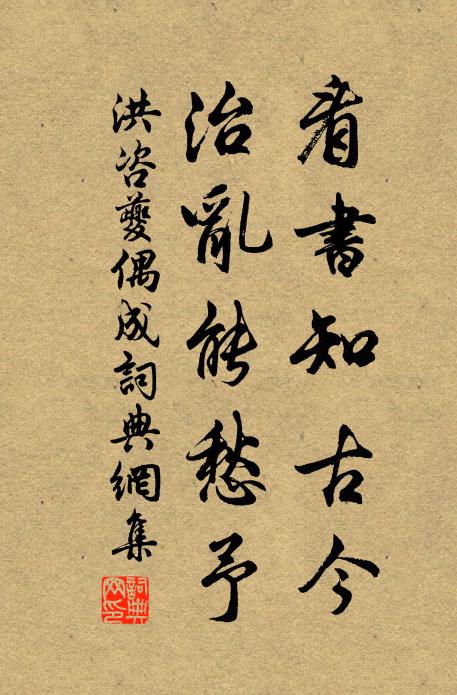 看書知古今
治亂能愁予
洪咨夔偶成詞典網集
詞典網印